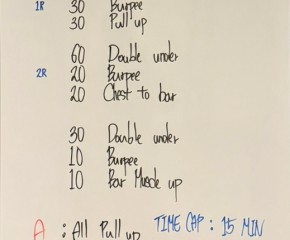 1R 30 Burpee
30 Pull up
60 Double under
2R 20 Burpee
20 Chest to bar
30 Double under
10 Burpee
10 Bar Muscle up
A : All Pull up TIME CAP : 15 MIN